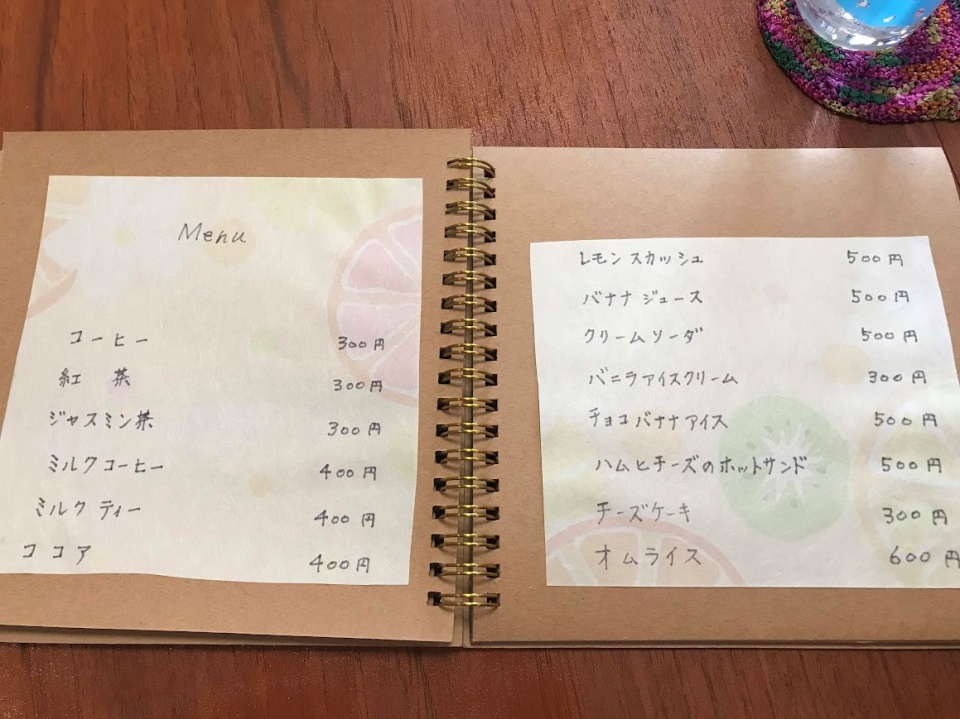 Menu
コーヒー 300円
紅茶 300円
ジャスミン茶 300円
ミルクコーヒー 400円
ミルクティー 400円
ココア 400円
レモンスカッシュ 500円
バナナジュース 500円
クリームソーダ 500円
バニラアイスクリーム 300円
チョコバナナアイス 500円
ハムとチーズのホットサンド 500円
チーズケーキ 300円
オムライス 600円